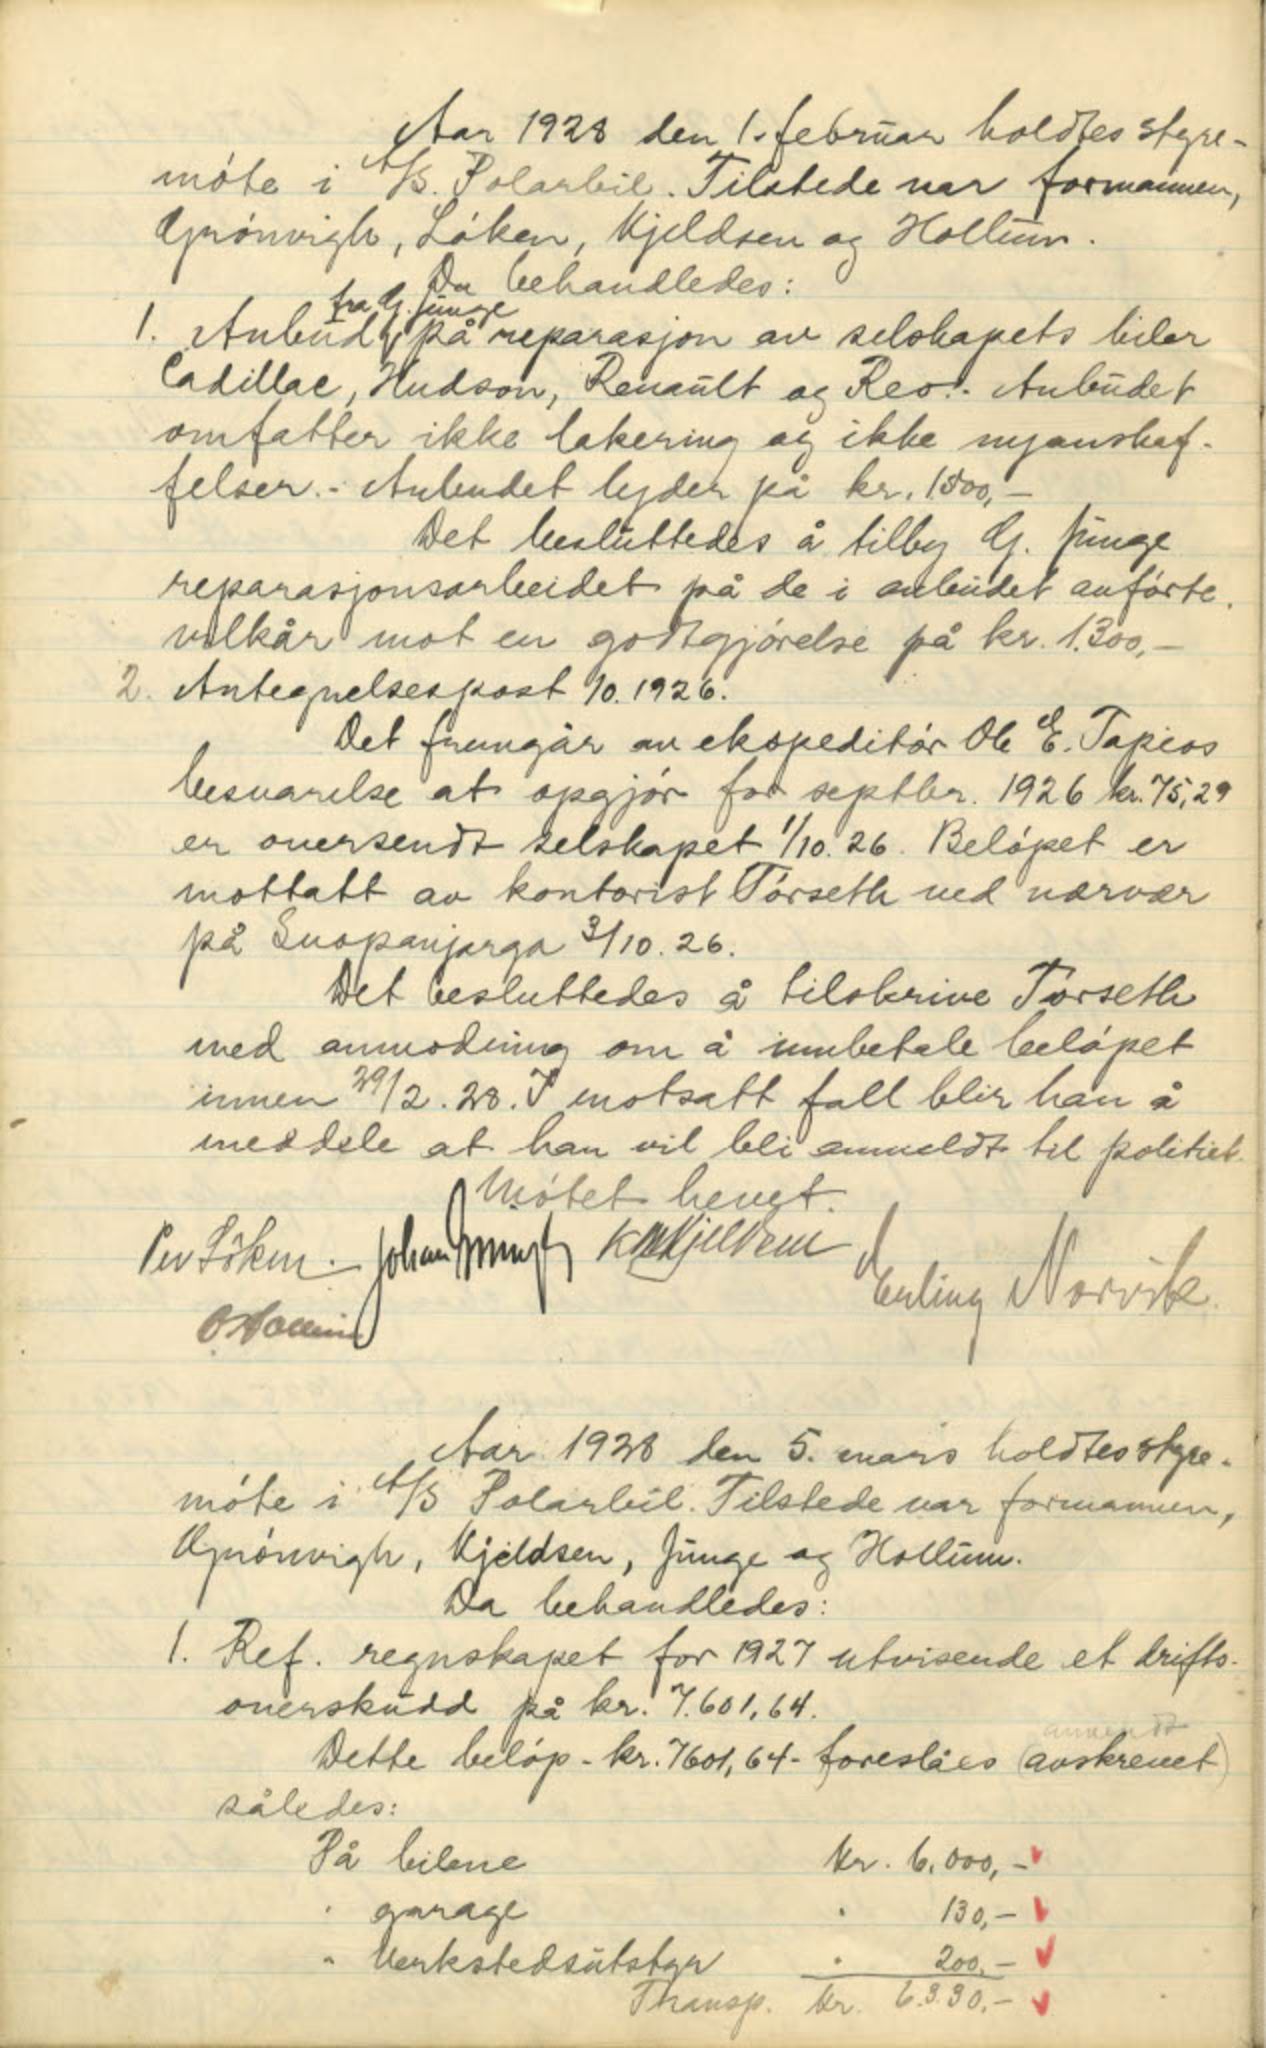 Aar 1928 den 1. februar holdtes styre-
møte i A/S. Polarbil. Tilstede var formannen,
Grønvigh, Løken, Kjeldsen og Hollum.
Da behandledes:
fra G. Junge
1. Anbud på reparasjon av selskapets biler
Cadillac, Hudson, Renault og Reo.- Anbudet
omfatter ikke lakering og ikke nyanskaf-
felser.- Anbudet lyder på kr. 1500,-
Det besluttedes å tilby G. Junge
reparasjonsarbeidet på de i anbudet anførte
vilkår mot en godtgjørelse på kr. 1.300,-
2. Antegnelsespost 10. 1926.
Det fremgår av ekspeditør Ole E. Tapios
besvarelse at opgjør for septbr. 1926 kr. 75,29
er oversendt selskapet 1/10. 26. Beløpet er
mottatt av kontorist Tørseth ved nærvær
på Suopanjarga 3/10. 26.
Det besluttedes å tilskrive Tørseth
med anmodning om å innbetale beløpet
innen 29/2. 28. I motsatt fall blir han å
meddele at han vil bli anmeldt til politiet.
Møtet hevet.
Per Løken. Johan Grønvigh Kjeldsen Erling Norvik.
O Hollum
Aar 1928 den 5. mars holdtes styre-
møte i A/S Polarbil. Tilstede var formannen,
Grønvigh, Kjeldsen, Junge og Hollum.
Da behandledes:
1. Ref. regnskapet for 1927 utvisende et drifts-
overskudd på kr. 7.601,64.
anvendt
Dette beløp - kr. 7601,64 - foreslåes (avskrevet)
således:
På bilene kr. 6.000,-
" garage " 130,-
" Verkstedsutstyr " 200,-
Transp. kr. 6.330,-